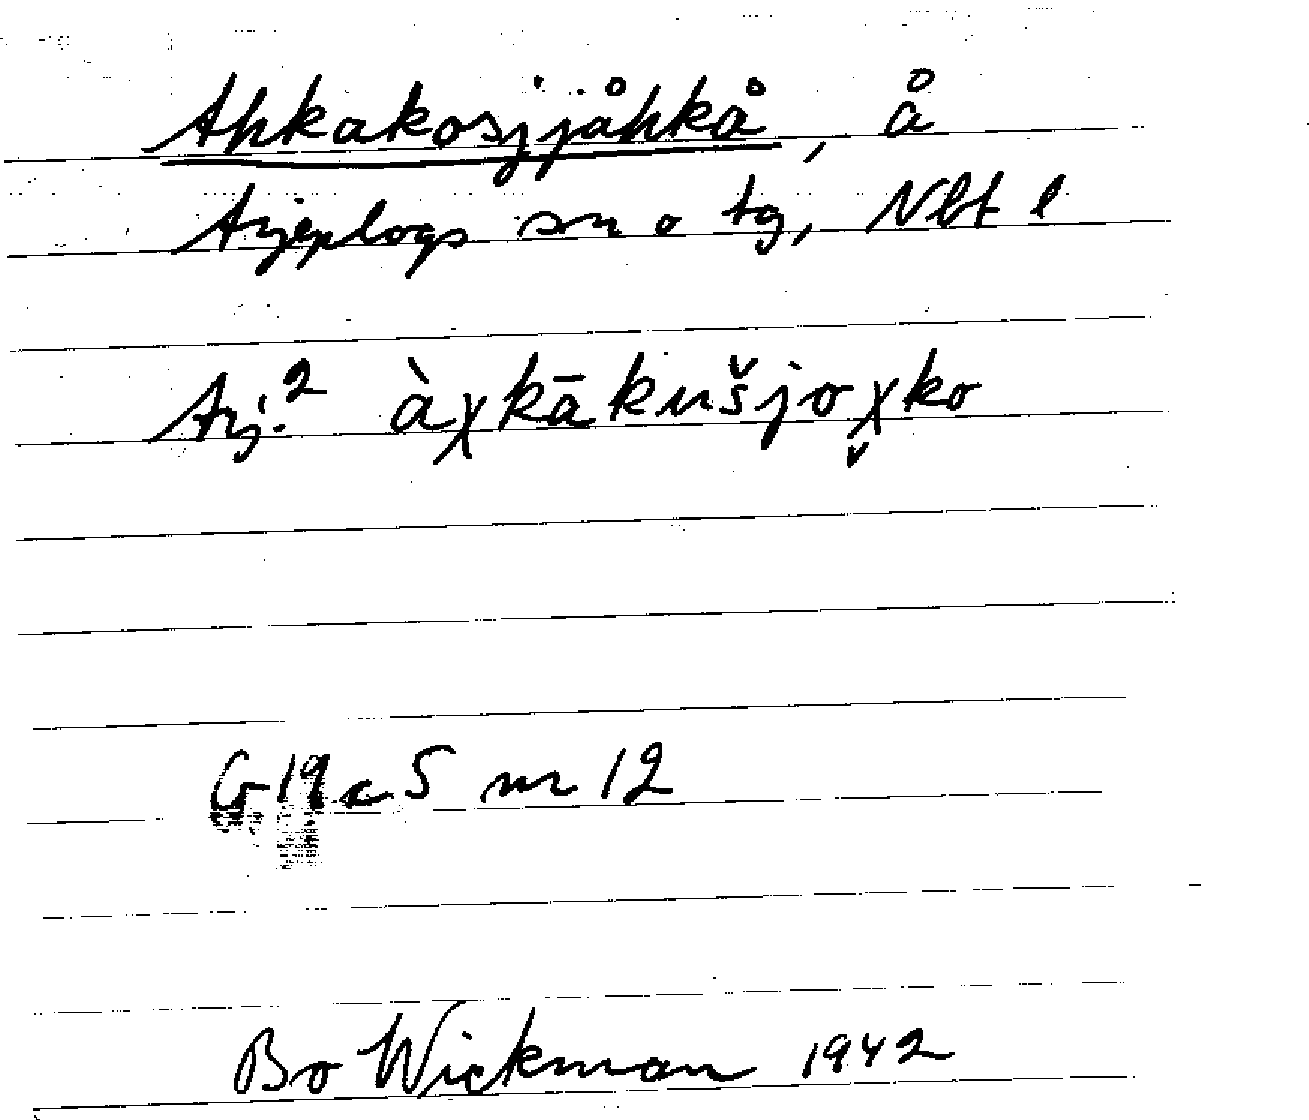 Ahkakosjjåhkå, å
Arjeplogs sn o tg, Nbt l
Arj.² àχkākušjoχ̬ko
G19c5 nr 12
Bo Wickman 1942